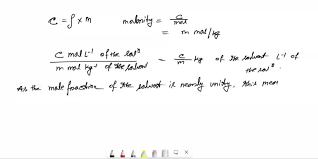 C = ∫ × m    molarity = C/mol
= m mol/kg
C mol L⁻¹ of the sol³ / m mol kg⁻¹ of the solvent = C/m kg of the solvent L⁻¹ of the sol³.
As the mole fraction of the solvent is nearly unity, this mean